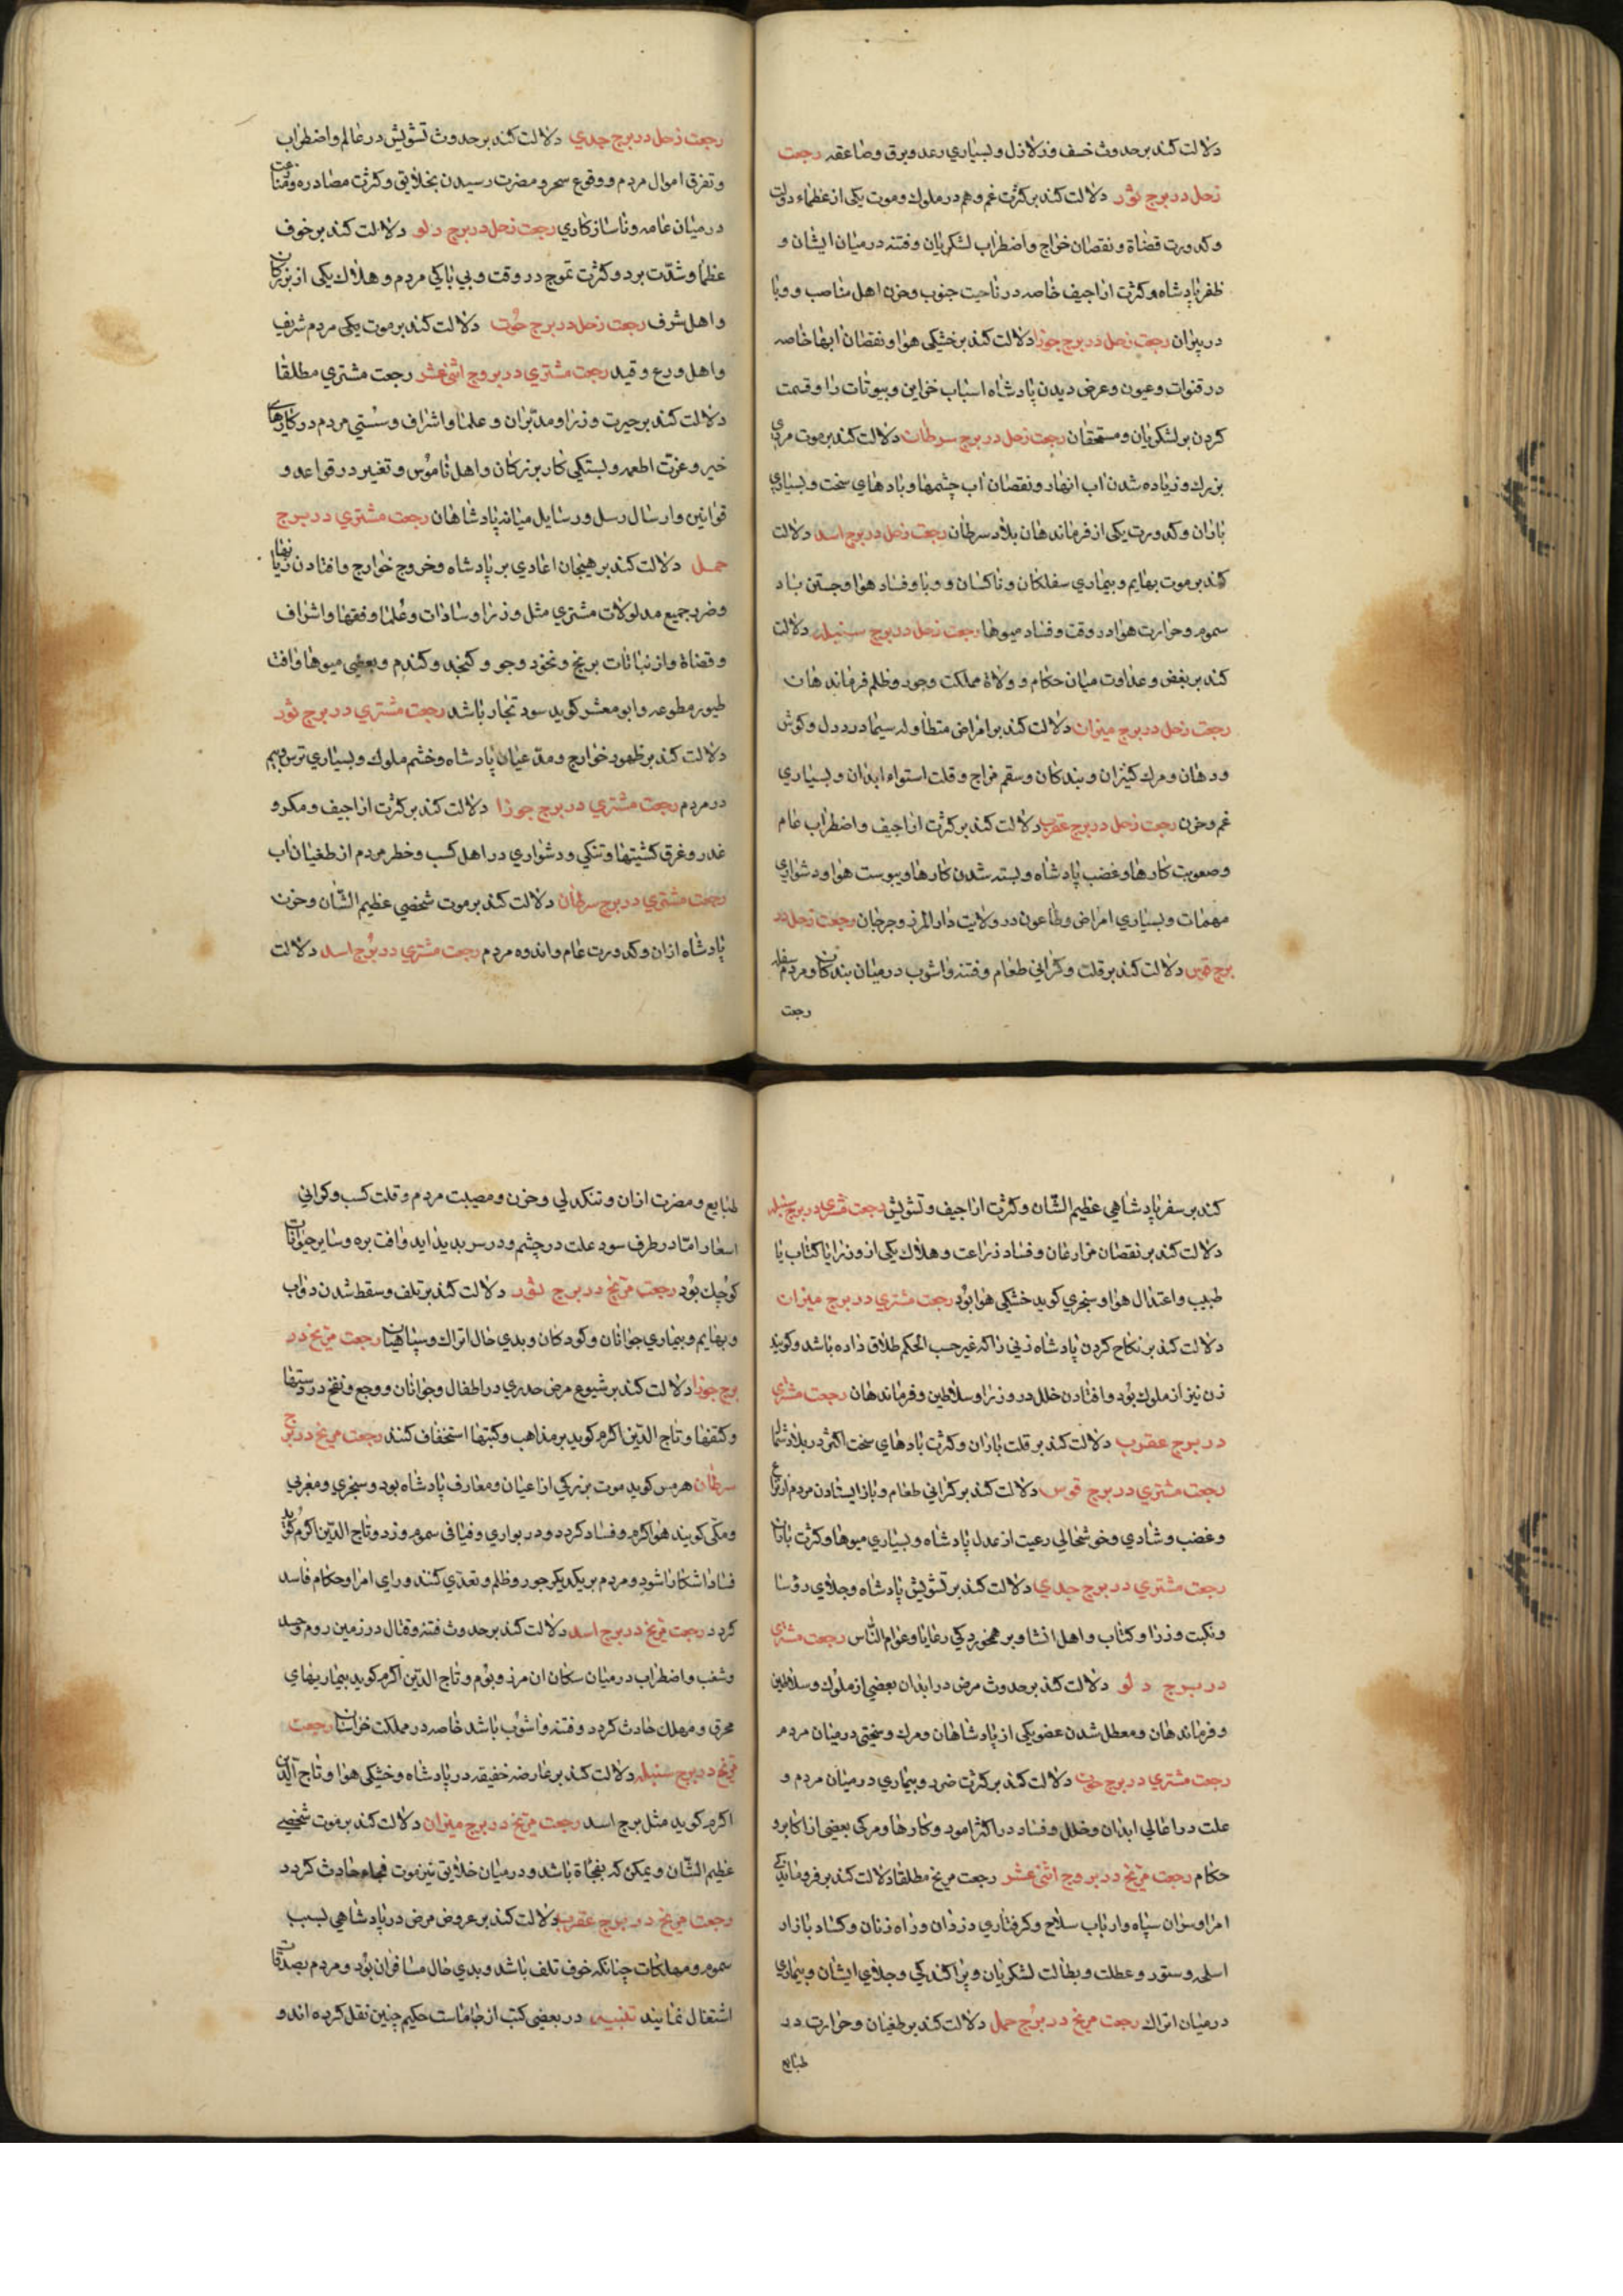 دلالت کند بر حدوث خسف و زلازل و بسیاری رعد و برق و صاعقه رجعت
زحل در برج ثور دلالت کند بر کثرت غم و هم در ملوک و موت یکی از عظماء دولت
و کدورت قضاة و نقصان خراج و اضطراب لشکریان و فتنه در میان ایشان و
ظفر پادشاه و کثرت اراجیف خاصه در ناحیت جنوب و حزن اهل مناصب و وبا
در پیران رجعت زحل در برج جوزا دلالت کند بر خشکی هوا و نقصان ابها خاصه
در قنوات و عیون و عرض دیدن پادشاه اسباب خزاین و بیوتات را و قسمت
کردن بر لشکریان و مستحقان رجعت زحل در برج سرطان دلالت کند بر موت مردی
بزرک و زیاده شدن اب انهار و نقصان اب چشمها و بادهای سخت و بسیاری
باران و کدورت یکی از فرماندهان بلاد سرطان رجعت زحل در برج اسد دلالت
کند بر موت بهایم و بیماری سفلکان و ناکسان و وبا و فساد هوا و جستن باد
سموم و حرارت هوا در وقت و فساد میوها رجعت زحل در برج سنبله دلالت
کند بر بغض و عداوت میان حکام و ولاة مملکت و جور و ظلم فرماندهان
رجعت زحل در برج میزان دلالت کند بر امراض متطاوله سیما درد دل و کوش
و دهان و مرک کنیزان و بندکان و سقم مزاج و قلت استواء ابدان و بسیاری
غم و حزن رجعت زحل در برج عقرب دلالت کند بر کثرت اراجیف و اضطراب عام
و صعوبت کارها و غضب پادشاه و بسته شدن کارها و یبوست هوا و دشواری
مهمات و بسیاری امراض و طاعون در ولایت دار المرز و جرجان رجعت زحل در
برج قوس دلالت کند بر قلت و کرانی طعام و فتنه و اشوب در میان بندکان و مردم سفله
رجعت
رجعت زحل در برج جدی دلالت کند بر حدوث تشویش در عالم و اضطراب
و تفرق اموال مردم و وقوع سحر و مضرت رسیدن بخلایق و کثرت مصادره و منازعت
در میان عامه و ناسازکاری رجعت زحل در برج دلو دلالت کند بر خوف
عظما و شدّت برد و کثرت تموج در وقت و بی باکی مردم و هلاک یکی از بزرکان
و اهل شرف رجعت زحل در برج حوت دلالت کند بر موت یکی مردم شریف
و اهل ورع و قید رجعت مشتری در بروج اثنی عشر رجعت مشتری مطلقا
دلالت کند بر حیرت وزرا و مدبّران و علما و اشراف و سستی مردم در کارهای
خیر و عزّت اطعمه و بستکی کار بزرکان و اهل ناموس و تغیر در قواعد و
قوانین و ارسال رسل و رسایل میانه پادشاهان رجعت مشتری در برج
حمل دلالت کند بر هیجان اعادی بر پادشاه و خروج خوارج و افتادن زیانها
و ضرر جمیع مدلولات مشتری مثل وزرا و سادات و علما و فقها و اشراف
و قضاة و از نباتات برنج و نخود و جو و کنجد و کندم و بعضی میوها و افت
طیور مطوعه و ابو معشر کوید سود تجار باشد رجعت مشتری در برج ثور
دلالت کند بر ظهور خوارج و مدّعیان پادشاه و خشم ملوک و بسیاری ترس و بیم
در مردم رجعت مشتری در برج جوزا دلالت کند بر کثرت اراجیف و مکر و
غدر و غرق کشتیها و تنکی و دشواری در اهل کسب و خطر مردم از طغیان اب
رجعت مشتری در برج سرطان دلالت کند بر موت شخصی عظیم الشّان و حزن
پادشاه ازان و کدورت عام و اندوه مردم رجعت مشتری در برج اسد دلالت
کند بر سفر پادشاهی عظیم الشّان و کثرت اراجیف و تشویش رجعت مشتری در برج سنبله
دلالت کند بر نقصان مزارعان و فساد زراعت و هلاک یکی از وزرا یا کتّاب یا
طبیب و اعتدال هوا و سنجری کوید خشکی هوا بود رجعت مشتری در برج میزان
دلالت کند بر نکاح کردن پادشاه زنی را که غیر حسب الحکم طلاق داده باشد و کویند
زن نیز از ملوک بود و افتادن خلل در وزرا و سلاطین و فرماندهان رجعت مشتری
در برج عقرب دلالت کند بر قلت باران و کثرت بادهای سخت اکثر در بلاد شمال
رجعت مشتری در برج قوس دلالت کند بر کرانی طعام و باز ایستادن مردم از نزاع
و غضب و شادی و خوشحالی رعیت از عدل پادشاه و بسیاری میوها و کثرت باران
رجعت مشتری در برج جدی دلالت کند بر تشویش پادشاه و جلای رؤسا
و نکبت وزرا و کتّاب و اهل انشا و بر همخوردکی رعایا و عوام النّاس رجعت مشتری
در برج دلو دلالت کند بر حدوث مرض در ابدان بعضی از ملوک و سلاطین
و فرماندهان و معطل شدن عضو یکی از پادشاهان و مرک و سختی در میان مردم
رجعت مشتری در برج حوت دلالت کند بر کثرت ضرر و بیماری در میان مردم و
علت در اعالی ابدان و خلل و فساد در اکثر امور و کارها و مرک بعضی از اکابر و
حکام رجعت مریخ در بروج اثنی عشر رجعت مریخ مطلقا دلالت کند بر فروماندکی
امرا و سران سپاه و ارباب سلاح و کرفتاری دزدان و راه زنان و کساد بازار
اسلحه و ستور و عطلت و بطالت لشکریان و پراکندکی و جلای ایشان و بیماری
در میان اتراک رجعت مریخ در برج حمل دلالت کند بر طغیان و حرارت در
طبایع
طبایع و مضرت ازان و تنکدلی و حزن و مصیبت مردم و قلت کسب و کرانی
اسعار امّا در طرف سود علت در چشم و در سر پدید اید و افت بره و سایر حیوانات
کوچک بود رجعت مریخ در برج ثور دلالت کند بر تلف و سقط شدن دواب
و بهایم و بیماری جوانان و کودکان و بدی حال اتراک و سپاهیان رجعت مریخ در
برج جوزا دلالت کند بر شیوع مرض جدری در اطفال و جوانان و وجع و نفخ در دستها
و کتفها و تاج الدّین اکرم کوید بر مذاهب و کتبها استخفاف کنند رجعت مریخ در برج
سرطان هرمس کوید موت بزرکی از اعیان و معارف پادشاه بود و سنجری و مغربی
و مکّی کویند هوا کرم و فساد کردد و در بواری و فیافی سموم وزد و تاج الدّین اکرم کوید
فساد اشکارا شود و مردم بر یکدیکر جور و ظلم و تعدّی کنند و رای امرا و حکام فاسد
کردد رجعت مریخ در برج اسد دلالت کند بر حدوث فتنه و قتال در زمین روم و حسد
و شغب و اضطراب در میان سکان ان مرز و بوم و تاج الدّین اکرم کوید بیماریهای
محرق و مهلک حادث کردد و فتنه و اشوب باشد خاصه در مملکت خراسان رجعت
مریخ در برج سنبله دلالت کند بر عارضه خفیفه در پادشاه و خشکی هوا و تاج الدّین
اکرم کوید مثل برج اسد رجعت مریخ در برج میزان دلالت کند بر موت شخصی
عظیم الشّان و یمکن که بفجاة باشد و در میان خلایق نیز موت فجاه حادث کردد
رجعت مریخ در برج عقرب دلالت کند بر عروض مرض در پادشاهی بسبب
سموم و مهلکات چنانکه خوف تلف باشد و بدی حال مسافران بود و مردم بصدقات
اشتغال نمایند تنبیه در بعضی کتب از جاماست حکیم چنین نقل کرده اند و